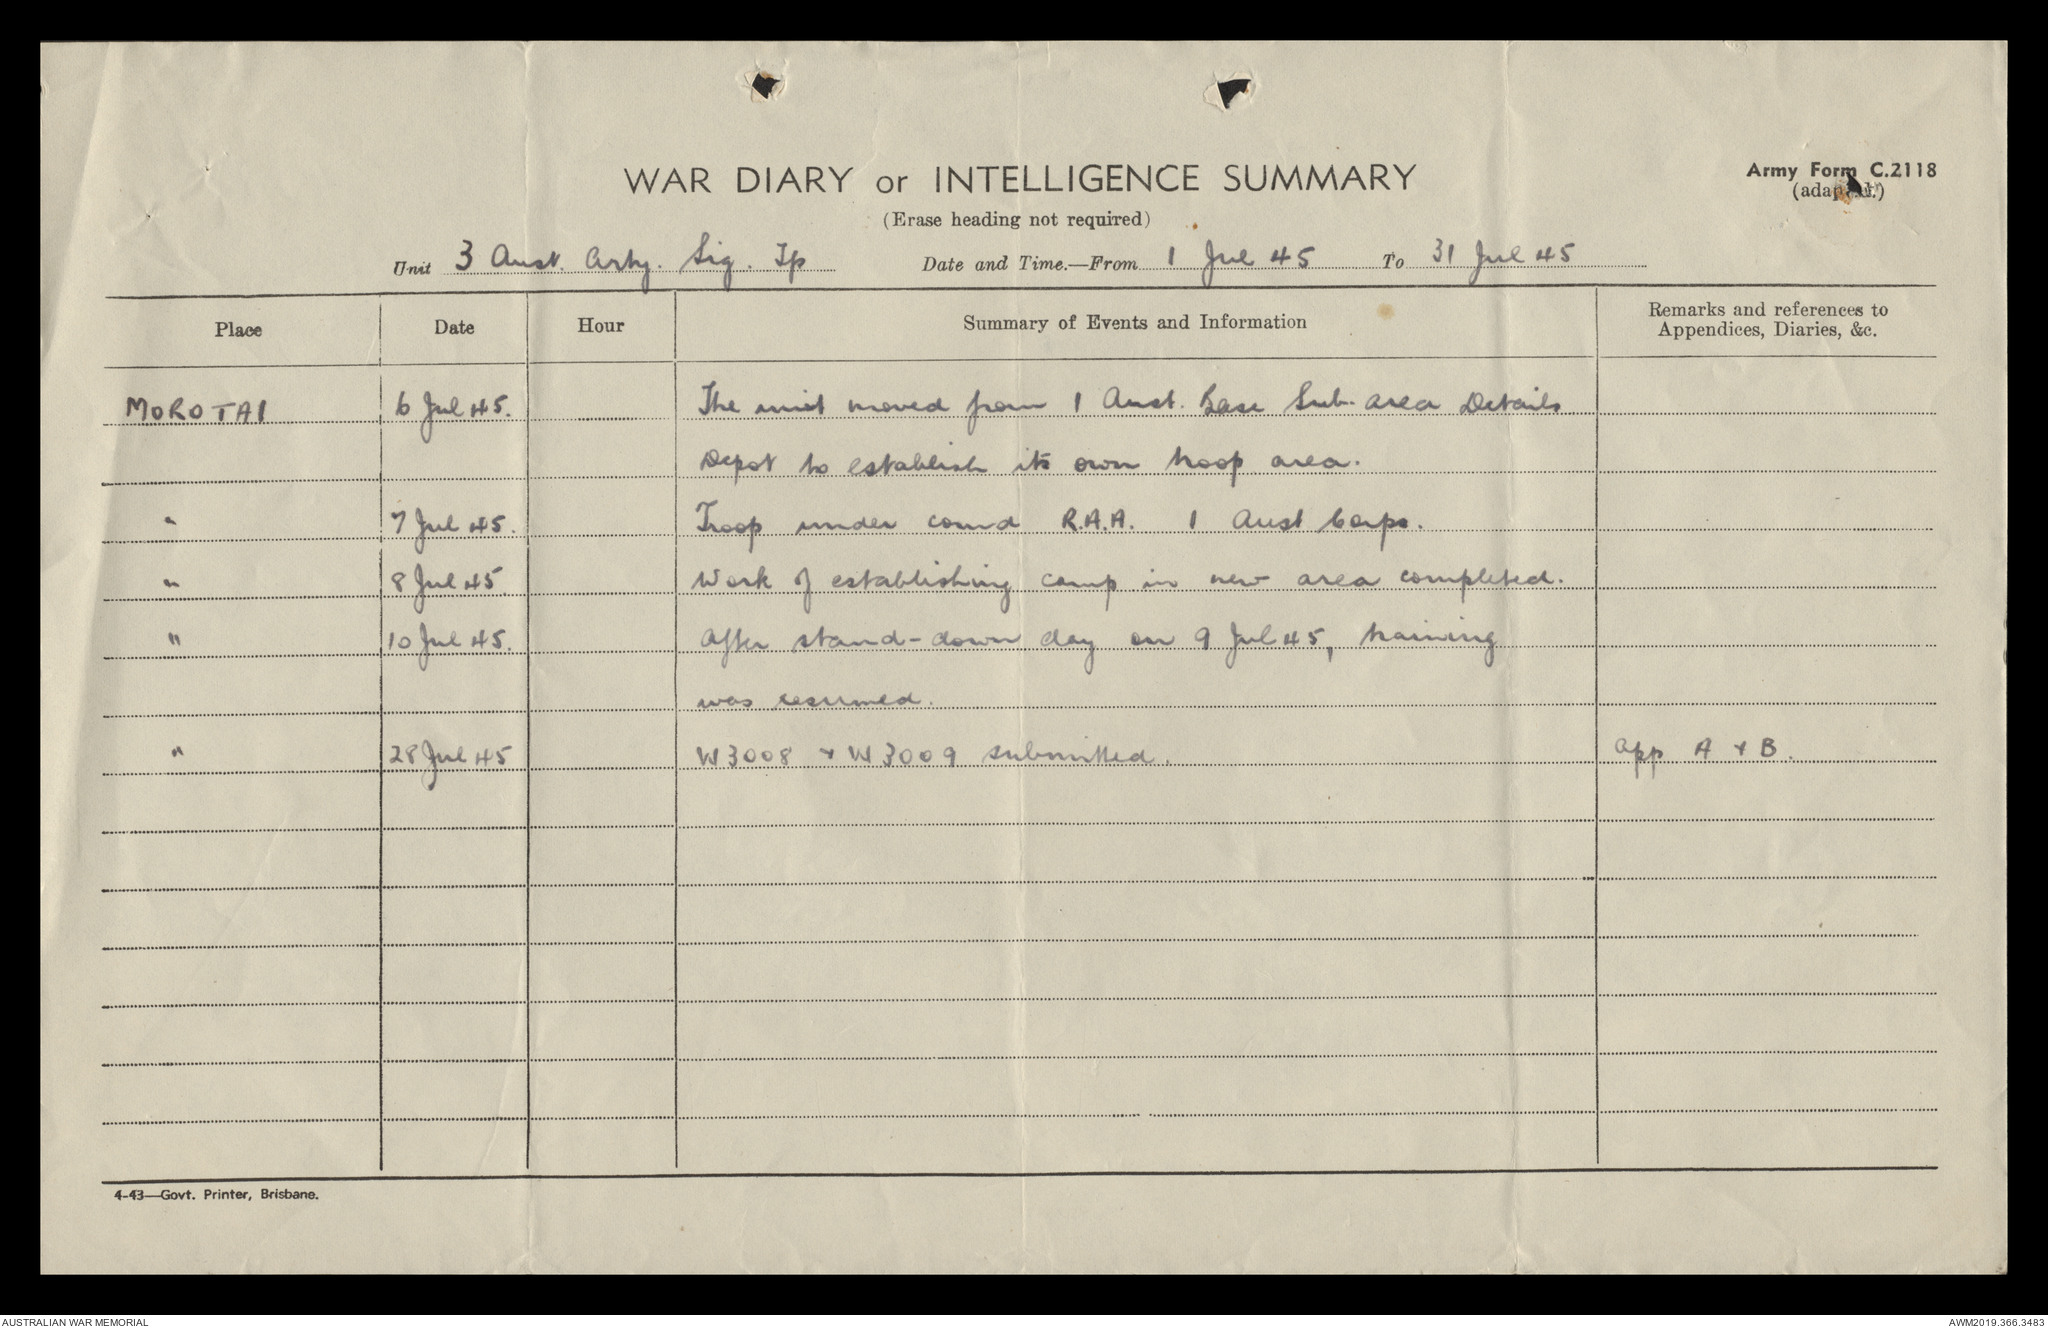 WAR DIARY or INTELLIGENCE SUMMARY
Army Form C.2118
(adapted.)
(Erase heading not required)
Unit 3 Aust. Arty. Sig. Tp Date and Time.—From 1 Jul 45 To 31 Jul 45
Place Date Hour Summary of Events and Information Remarks and references to
Appendices, Diaries, &c.
MOROTAI 6 Jul 45. The unit moved from 1 Aust. Base Sub. area Details
Depot to establish its own troop area.
" 7 Jul 45. Troop under comd R.A.A. 1 Aust Corps.
" 8 Jul 45. Work of establishing camp in new area completed.
" 10 Jul 45. After stand-down day on 9 Jul 45, training
was resumed.
" 28 Jul 45 W3008 + W3009 submitted. App A + B.
4-43—Govt. Printer, Brisbane.
AUSTRALIAN WAR MEMORIAL AWM2019.366.3483